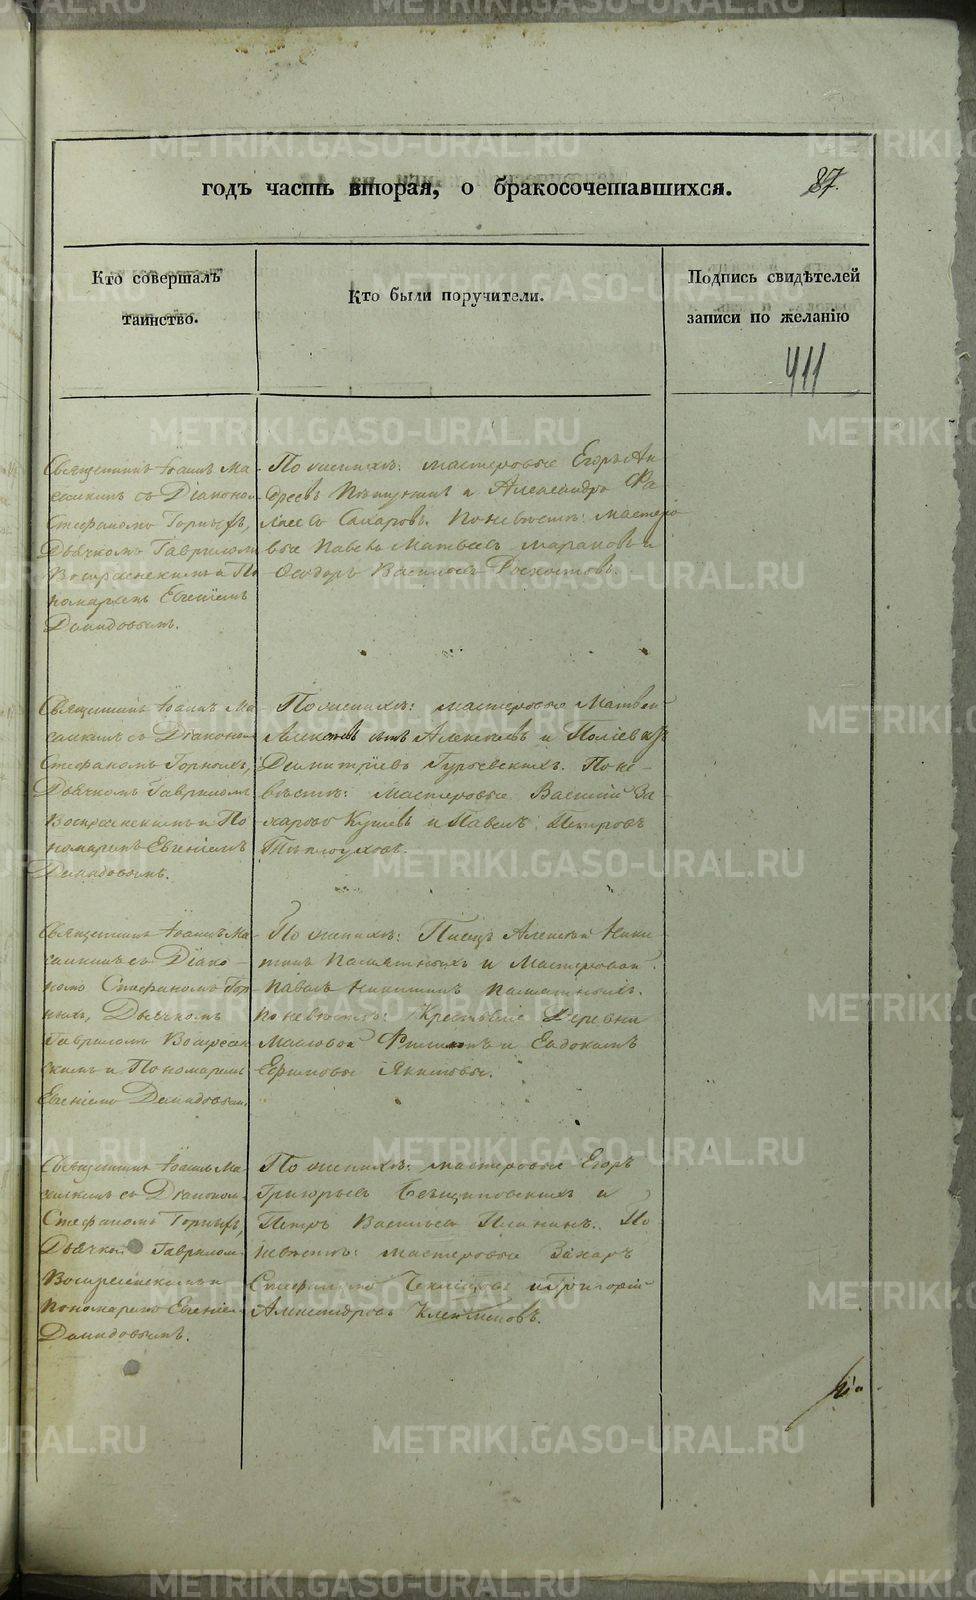 годъ часть вторая, о бракосочетавшихся.
87.
Кто совершалъ
таинство.
Кто были поручители.
Подпись свидѣтелей
записи по желанію
411
Священникъ Іоаннъ Ма-
самкинъ съ Діакономъ
Стефаномъ Горныхъ,
Дьячкомъ Гавриломъ
Воскресенскимъ и По
номаремъ Евгеніемъ
Демидовымъ.
По женихѣ: мастеровые Егоръ Ан
дреевъ и Александръ
Сахаровъ. По невѣстѣ: Мастеро
вые Павелъ Матвеевъ и
Ѳеодоръ Васильевъ
Священникъ Іоаннъ Ма
самкинъ съ Діакономъ
Стефаномъ Горныхъ,
Дьячкомъ Гавриломъ
Воскресенскимъ и По
номаремъ Евгеніемъ
Демидовымъ.
По женихѣ: мастеровые Матвей
Алексеевъ и
Димитріевъ Гурьевскихъ. По не-
вѣстѣ: Мастеровые Василій За
харовъ и Павелъ Петровъ
Теплоуховъ.
Священникъ Іоаннъ Ма
самкинъ съ Діако-
номъ Стефаномъ Гор
ныхъ, Дьячкомъ
Гавриломъ Воскресен
скимъ и Пономаремъ
Евгеніемъ Демидовым.
По женихѣ: Писецъ Алексей Ники
тинъ Памятныхъ и Мастеровой
Павелъ Никитинъ Памятныхъ.
По невѣстѣ: Крестьяне Деревни
Масловой Филиппъ и Евдокимъ
Ефимовы Якимовы.
Священникъ Іоаннъ Ма-
самкинъ съ Діакономъ
Стефаномъ Горныхъ,
Дьячкомъ Гавриломъ
Воскресенскимъ и
Пономаремъ Евгеніем
Демидовымъ.
По женихѣ: мастеровые Егоръ
Григорьевъ и
Петръ Васильевъ По
невѣстѣ: мастеровые Захаръ
Стефановъ и Григорій
Александровъ Клементьевъ.
METRIKI.GASO-URAL.RU